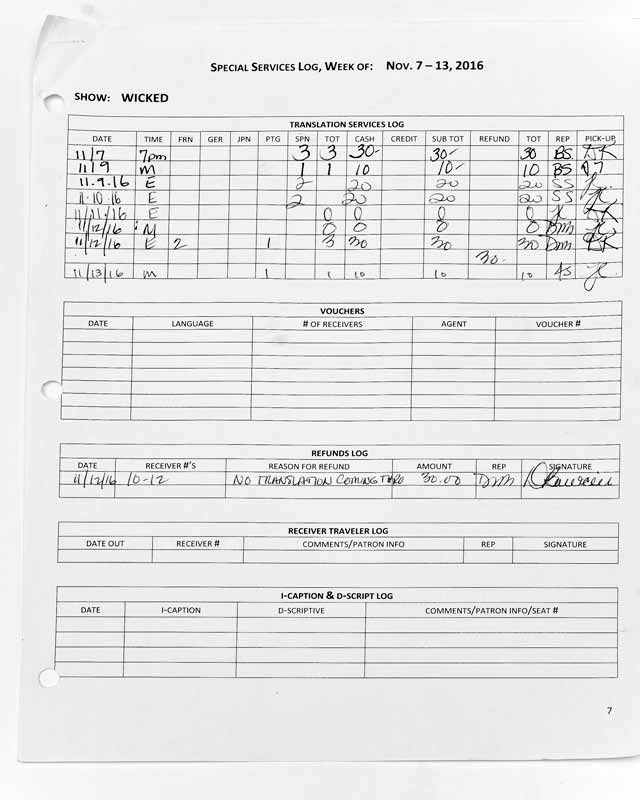 SPECIAL SERVICES LOG, WEEK OF: NOV. 7 – 13, 2016
SHOW: WICKED
TRANSLATION SERVICES LOG
DATE TIME FRN GER JPN PTG SPN TOT CASH CREDIT SUB TOT REFUND TOT REP PICK-UP
11/7 7pm 3 3 30- 30- 30 BS
11/9 M 1 1 10 10- 10 BS
11.9.16 E 2 20 20 20 SS
11.10.16 E 2 20 20 20 SS
11/11/16 E 0 0 0 0
11/12/16 M 0 0 0 0 DMM
11/12/16 E 2 1 3 30 30 30 DMM
30-
11/13/16 M 1 1 10 10 10 AS
VOUCHERS
DATE LANGUAGE # OF RECEIVERS AGENT VOUCHER #
REFUNDS LOG
DATE RECEIVER #'S REASON FOR REFUND AMOUNT REP SIGNATURE
11/12/16 10-12 NO TRANSLATION COMING THRO 30.00 DMM
RECEIVER TRAVELER LOG
DATE OUT RECEIVER # COMMENTS/PATRON INFO REP SIGNATURE
I-CAPTION & D-SCRIPT LOG
DATE I-CAPTION D-SCRIPTIVE COMMENTS/PATRON INFO/SEAT #
7